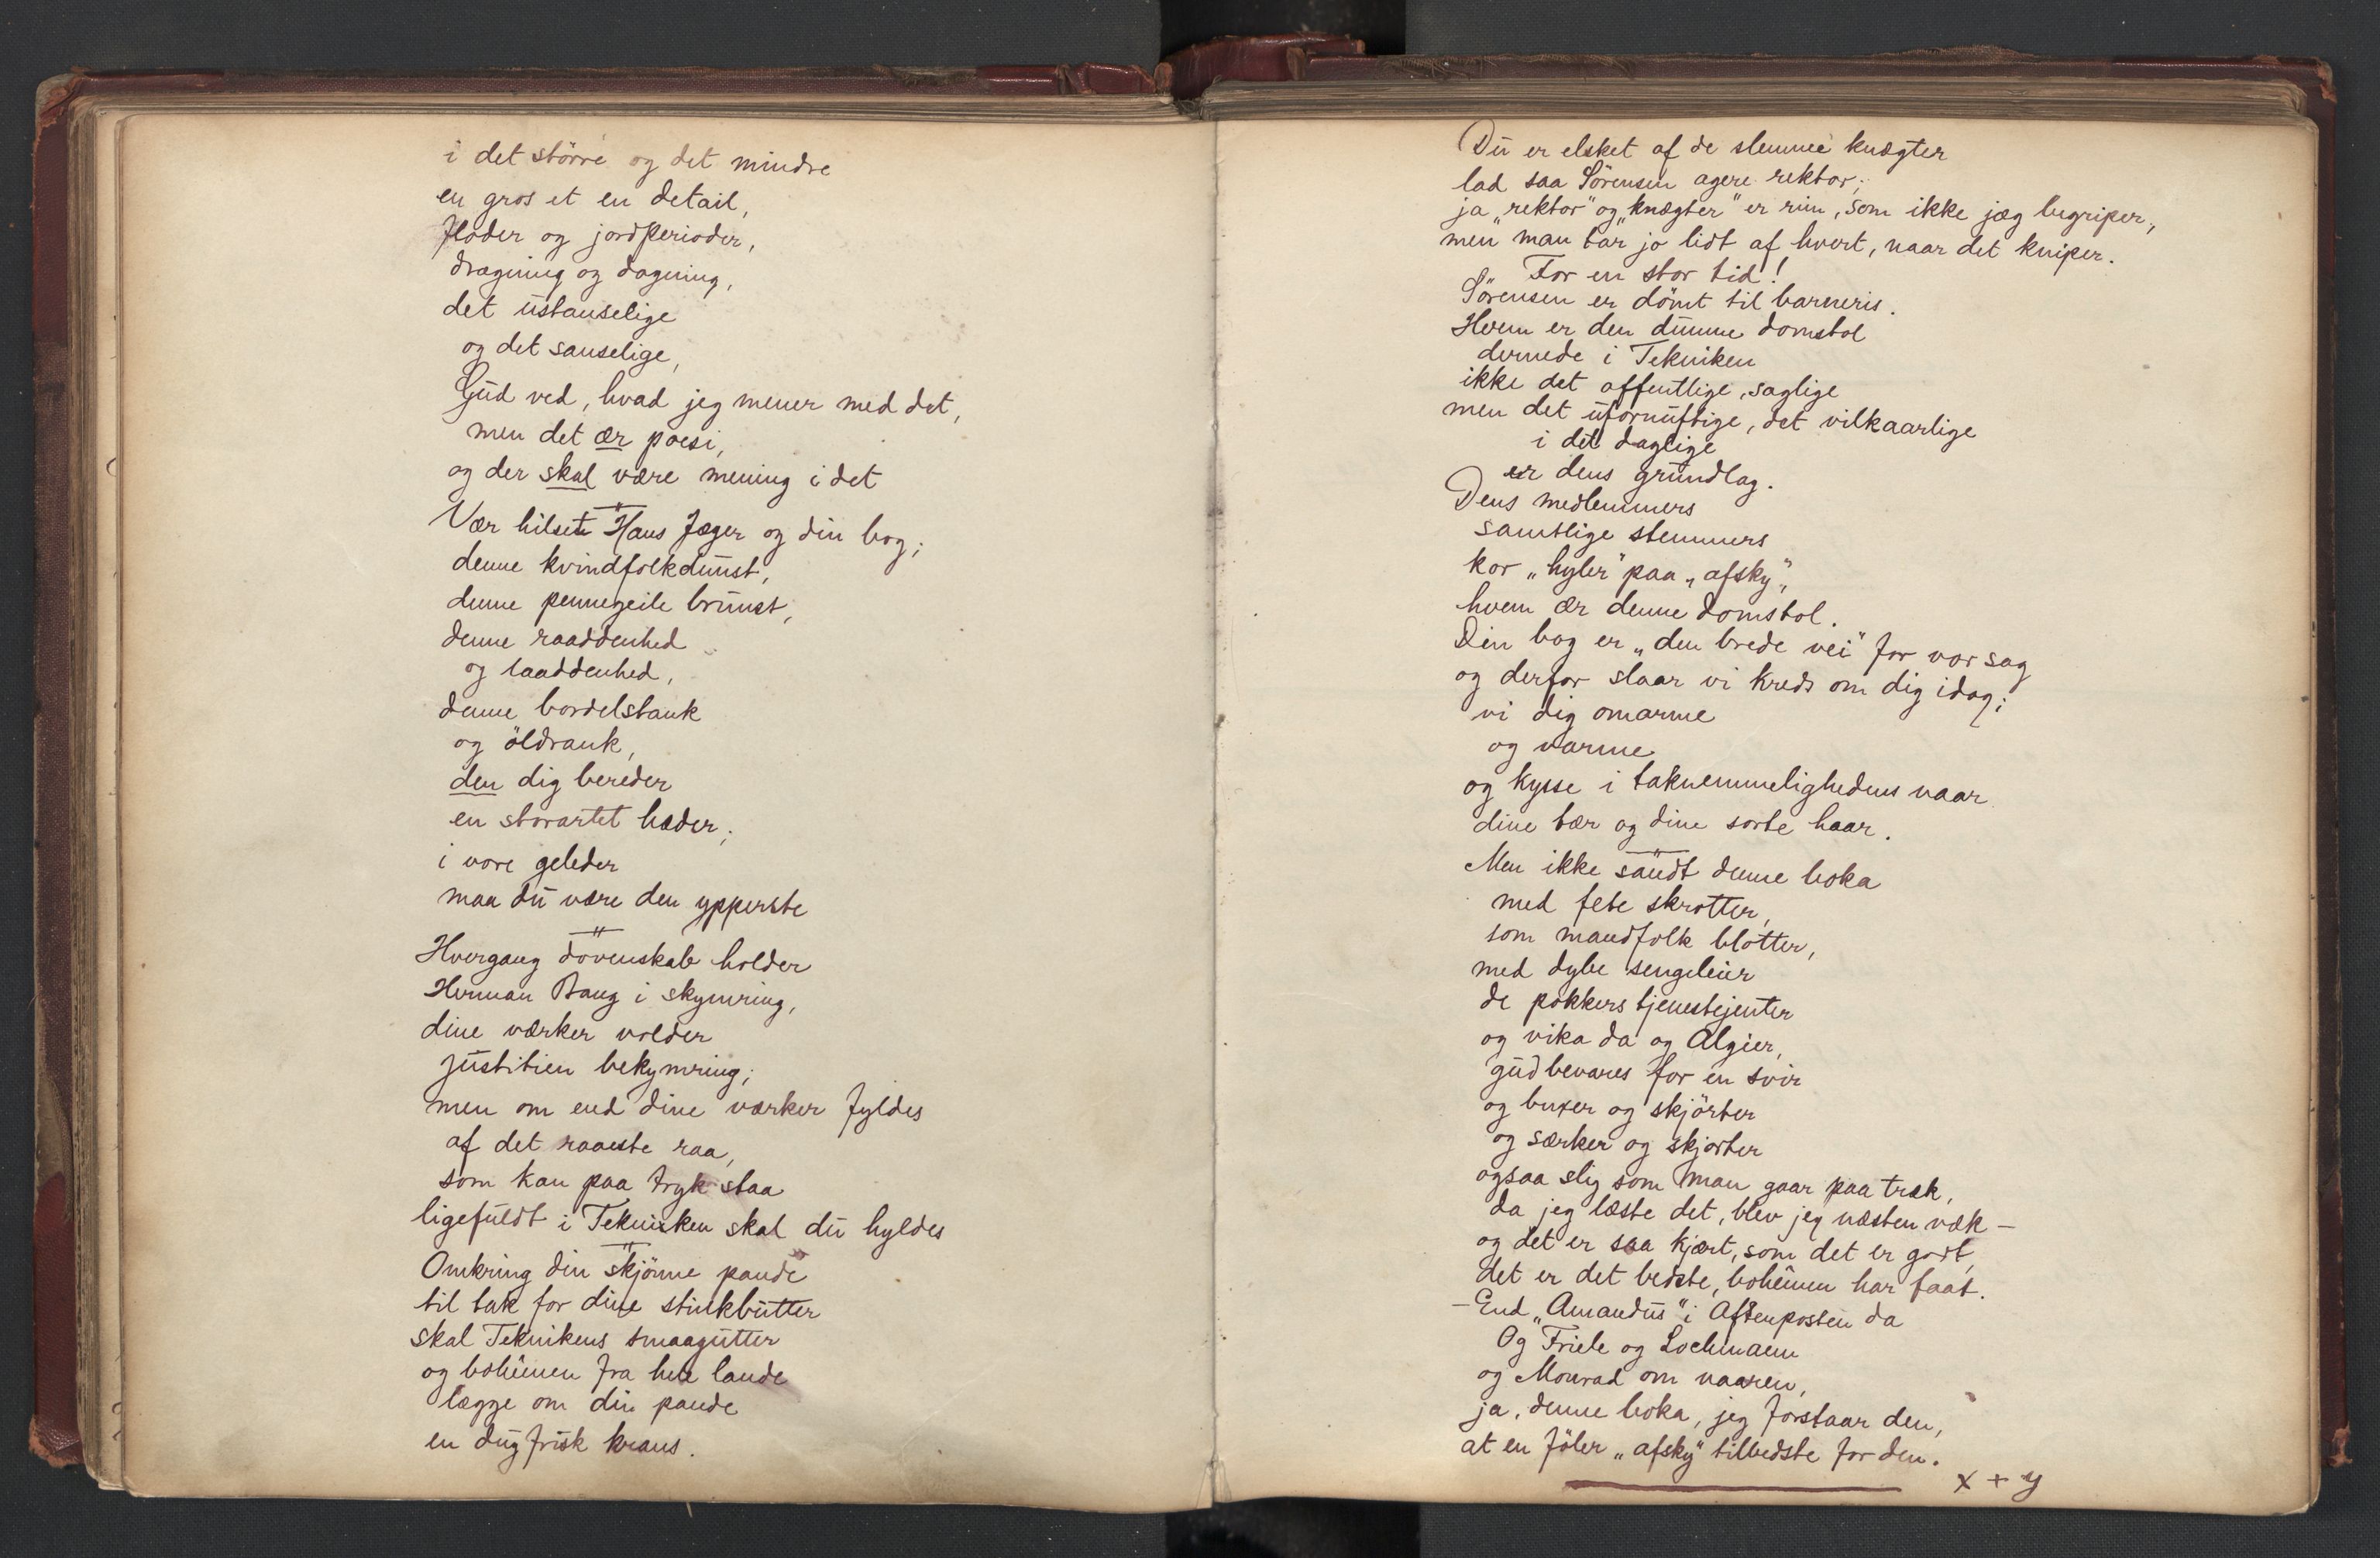 i det større og det mindre
en gros et en detail,
floder og jordperioder,
drægning og dagning,
det ustanselige
og det sanselige,
Gud ved, hvad jeg mener med det,
men det ær poesi,
og der skal være mening i det
Vær hilset Hans Jæger og din bog;
denne kvindfolkdunst,
denne pennegeile brunst,
denne raaddenhed
og laaddenhed,
denne bordelstank
og öldrank,
den dig bereder
en storartet hæder;
i vore geleder
maa du være den ypperste
Hvergang dovenskab holder
Herman Bang i skymring,
dine værker volder
justitien bekymring;
men om end dine værker fyldes
af det raaeste raa,
som kan paa tryk staa
ligefuldt i Tekniken skal du hyldes
Omkring din skjönne pande
til tak for dine stinkbutter
skal Teknikens smaagutter
og bohêmen fra hele lande
lægge om din pande
en dugfrisk krans.
Du er elsket af de slemme knægter
lad saa Sörensen agere rektor;
ja „rektor" og „knægter" er rim, som ikke jæg begriper,
men man tar jo lidt af hvert, naar det kniper.
For en stor tid!
Sörensen er dömt til barneris.
Hvem er den dumme domstol
dernede i Tekniken
ikke det offentlige, saglige
men det ufornuftige, det vilkaarlige
i det daglige
er dens grundlag.
Dens medlemmers
samtlige stemmers
kor „hyler" paa „afsky",
hvem ær denne domstol.
Din bog er „den brede vei" for vor sag
og derfor slaar vi kreds om dig idag;
vi dig omarme
og varme
og kysse i taknemmelighedens vaar
dine tær og dine sorte haar.
Men ikke sandt denne boka
med fete skrotter,
som mandfolk blotter,
med dybe sengeleier
de pokkers tjenestejenter
og vika da og Algier,
gudbevares for en svir
og buxer og skjörter
og særker og skjorter
ogsaa slig som man gaar paa træk,
da jeg læste det, blev jeg næsten væk –
og det er saa kjært, som det er godt,
det er det bedste, bohêmen har faat.
– End „Amandus" i Aftenposten da
Og Friele og Lochmann
og Monrad om vaaren,
ja, denne boka, jeg forstaar den,
at en föler „afsky" tilbedste for den.
x + y